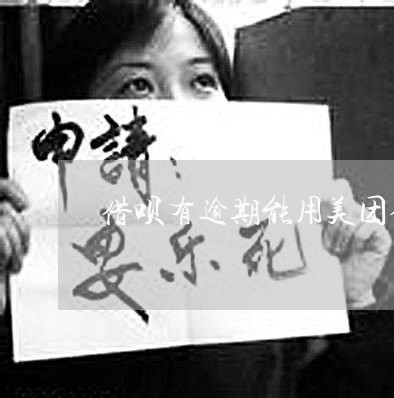 申請：
借呗有逾期能用美团
安乐死